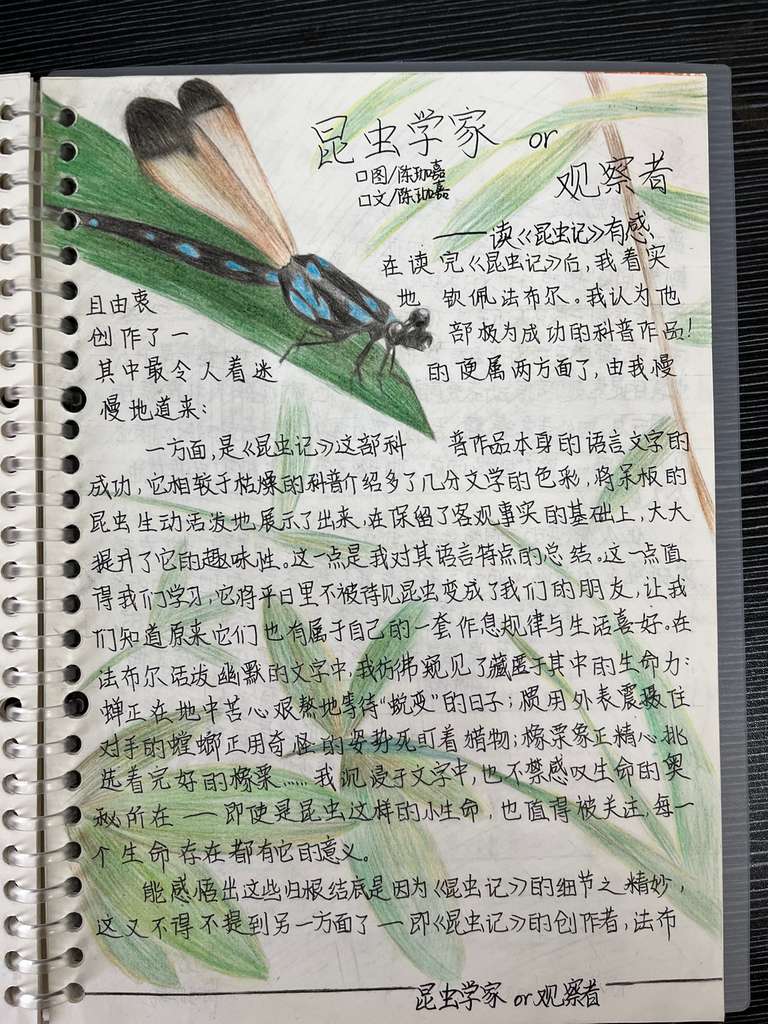 昆虫学家 or
观察者
□图/陈珈嘉
□文/陈珈嘉
——读《昆虫记》有感
在读完《昆虫记》后,我着实
且由衷地钦佩法布尔。我认为他
创作了一部极为成功的科普作品!
其中最令人着迷的便属两方面了,由我慢
慢地道来:
一方面,是《昆虫记》这部科普作品本身的语言文字的
成功,它相较于枯燥的科普介绍多了几分文学的色彩,将呆板的
昆虫生动活泼地展示了出来,在保留了客观事实的基础上,大大
提升了它的趣味性。这一点是我对其语言特点的总结。这一点值
得我们学习,它将平日里不被待见昆虫变成了我们的朋友,让我
们知道原来它们也有属于自己的一套作息规律与生活喜好。在
法布尔活泼幽默的文字中,我仿佛窥见了藏匿于其中的生命力:
蝉正在地中苦心艰熬地等待“蜕变”的日子;惯用外表震摄住
对手的螳螂正用奇怪的姿势死盯着猎物;橡栗象正精心挑
选着完好的橡栗……我沉浸于文字中,也不禁感叹生命的奥
秘所在——即使是昆虫这样的小生命,也值得被关注,每一
个生命存在都有它的意义。
能感悟出这些归根结底是因为《昆虫记》的细节之精妙,
这又不得不提到另一方面了——即《昆虫记》的创作者,法布
昆虫学家 or 观察者